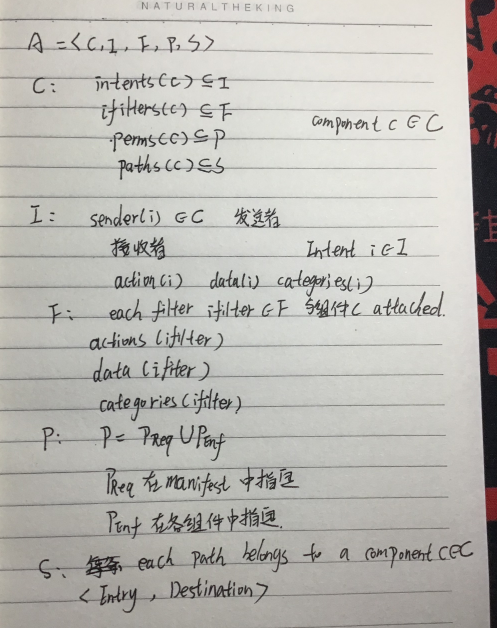 NATURALTHEKING
A = <C, I, F, P, S>
C: intents(c) ⊆ I
ifilters(c) ⊆ F
perms(c) ⊆ P component c ∈ C
paths(c) ⊆ S
I: sender(i) ∈ C 发送者
接收者 Intent i ∈ I
action(i) data(i) categories(i)
F: each filter ifilter ∈ F 与组件C attached.
actions (ifilter)
data (ifilter)
categories (ifilter)
P: P = PReq ∪ PEnf
PReq 在 manifest 中指定
PEnf 在各组件中指定.
S: each path belongs to a component c∈C
< Entry , Destination >